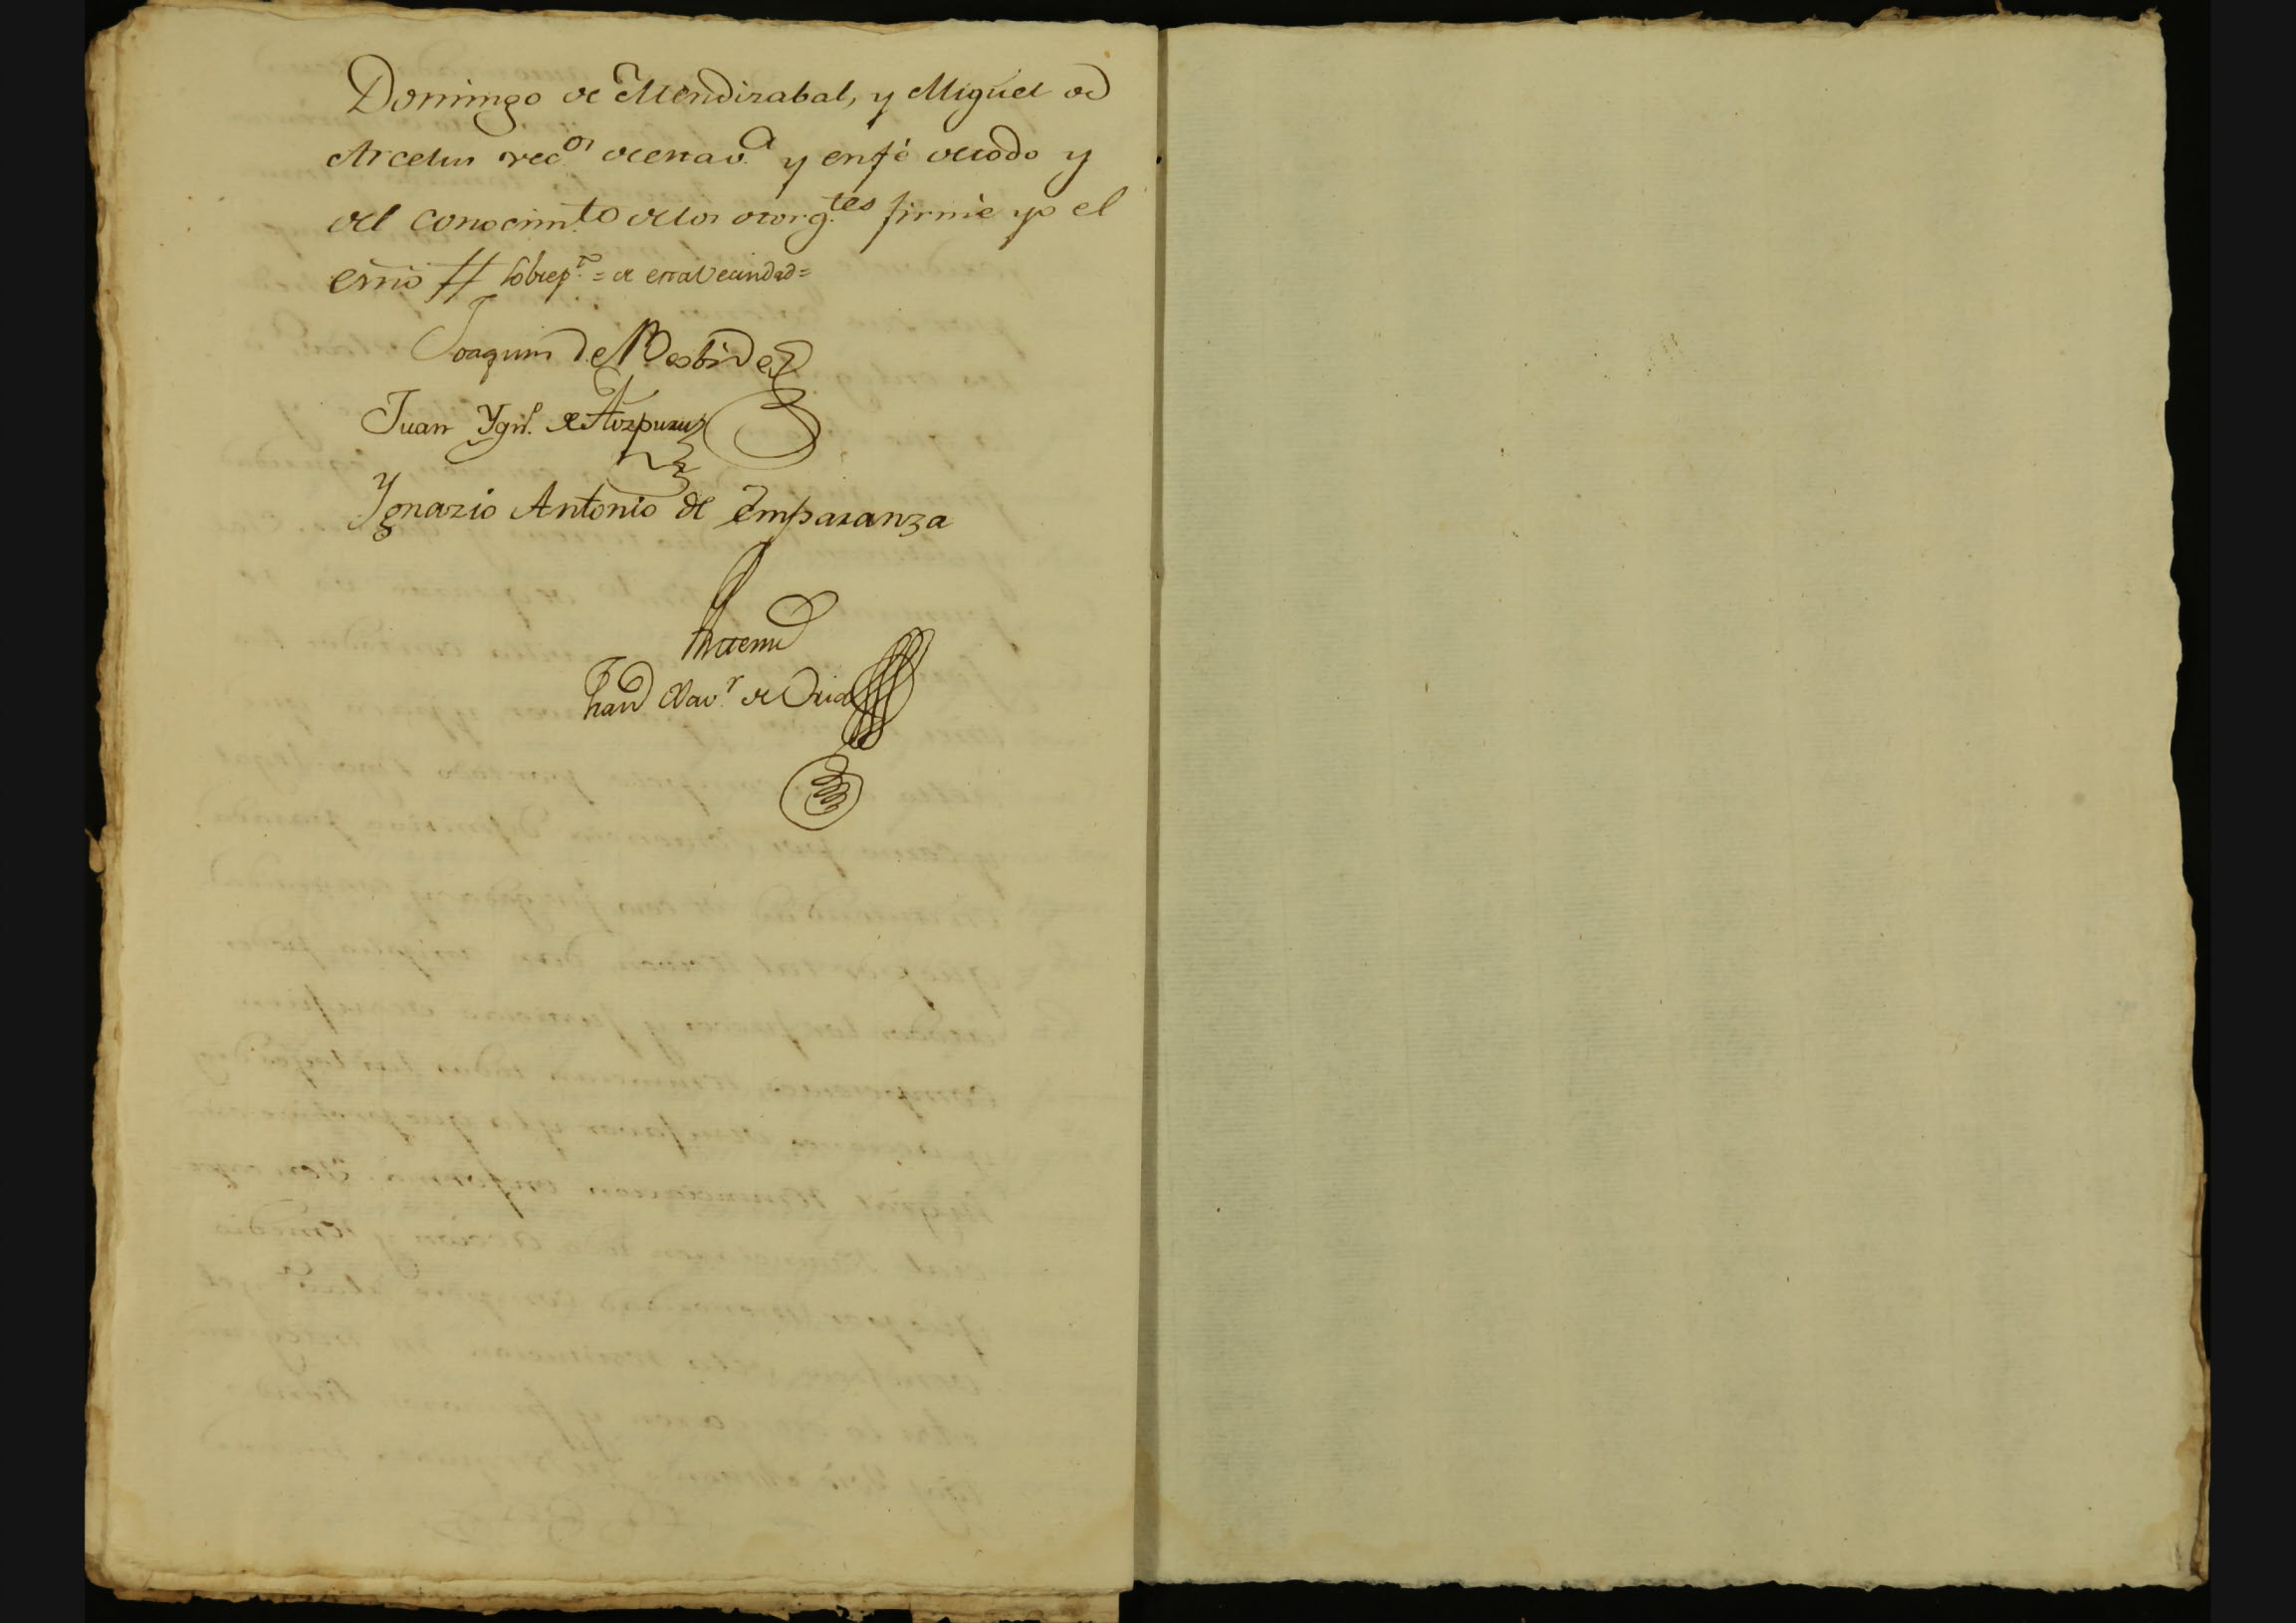 Domingo de Mendizabal, y Miguel de
Arcelus vec.os de esta v.a y en fé de todo y
del conocim.to de los otorg.tes firmé yo el
essno // sobrep.to = de esta vecindad =
Joaquin de Beobide
Juan Ygn.o de Aizpuru
Ygnazio Antonio de Emparanza
Antemi
Juan Xav.r de Oria